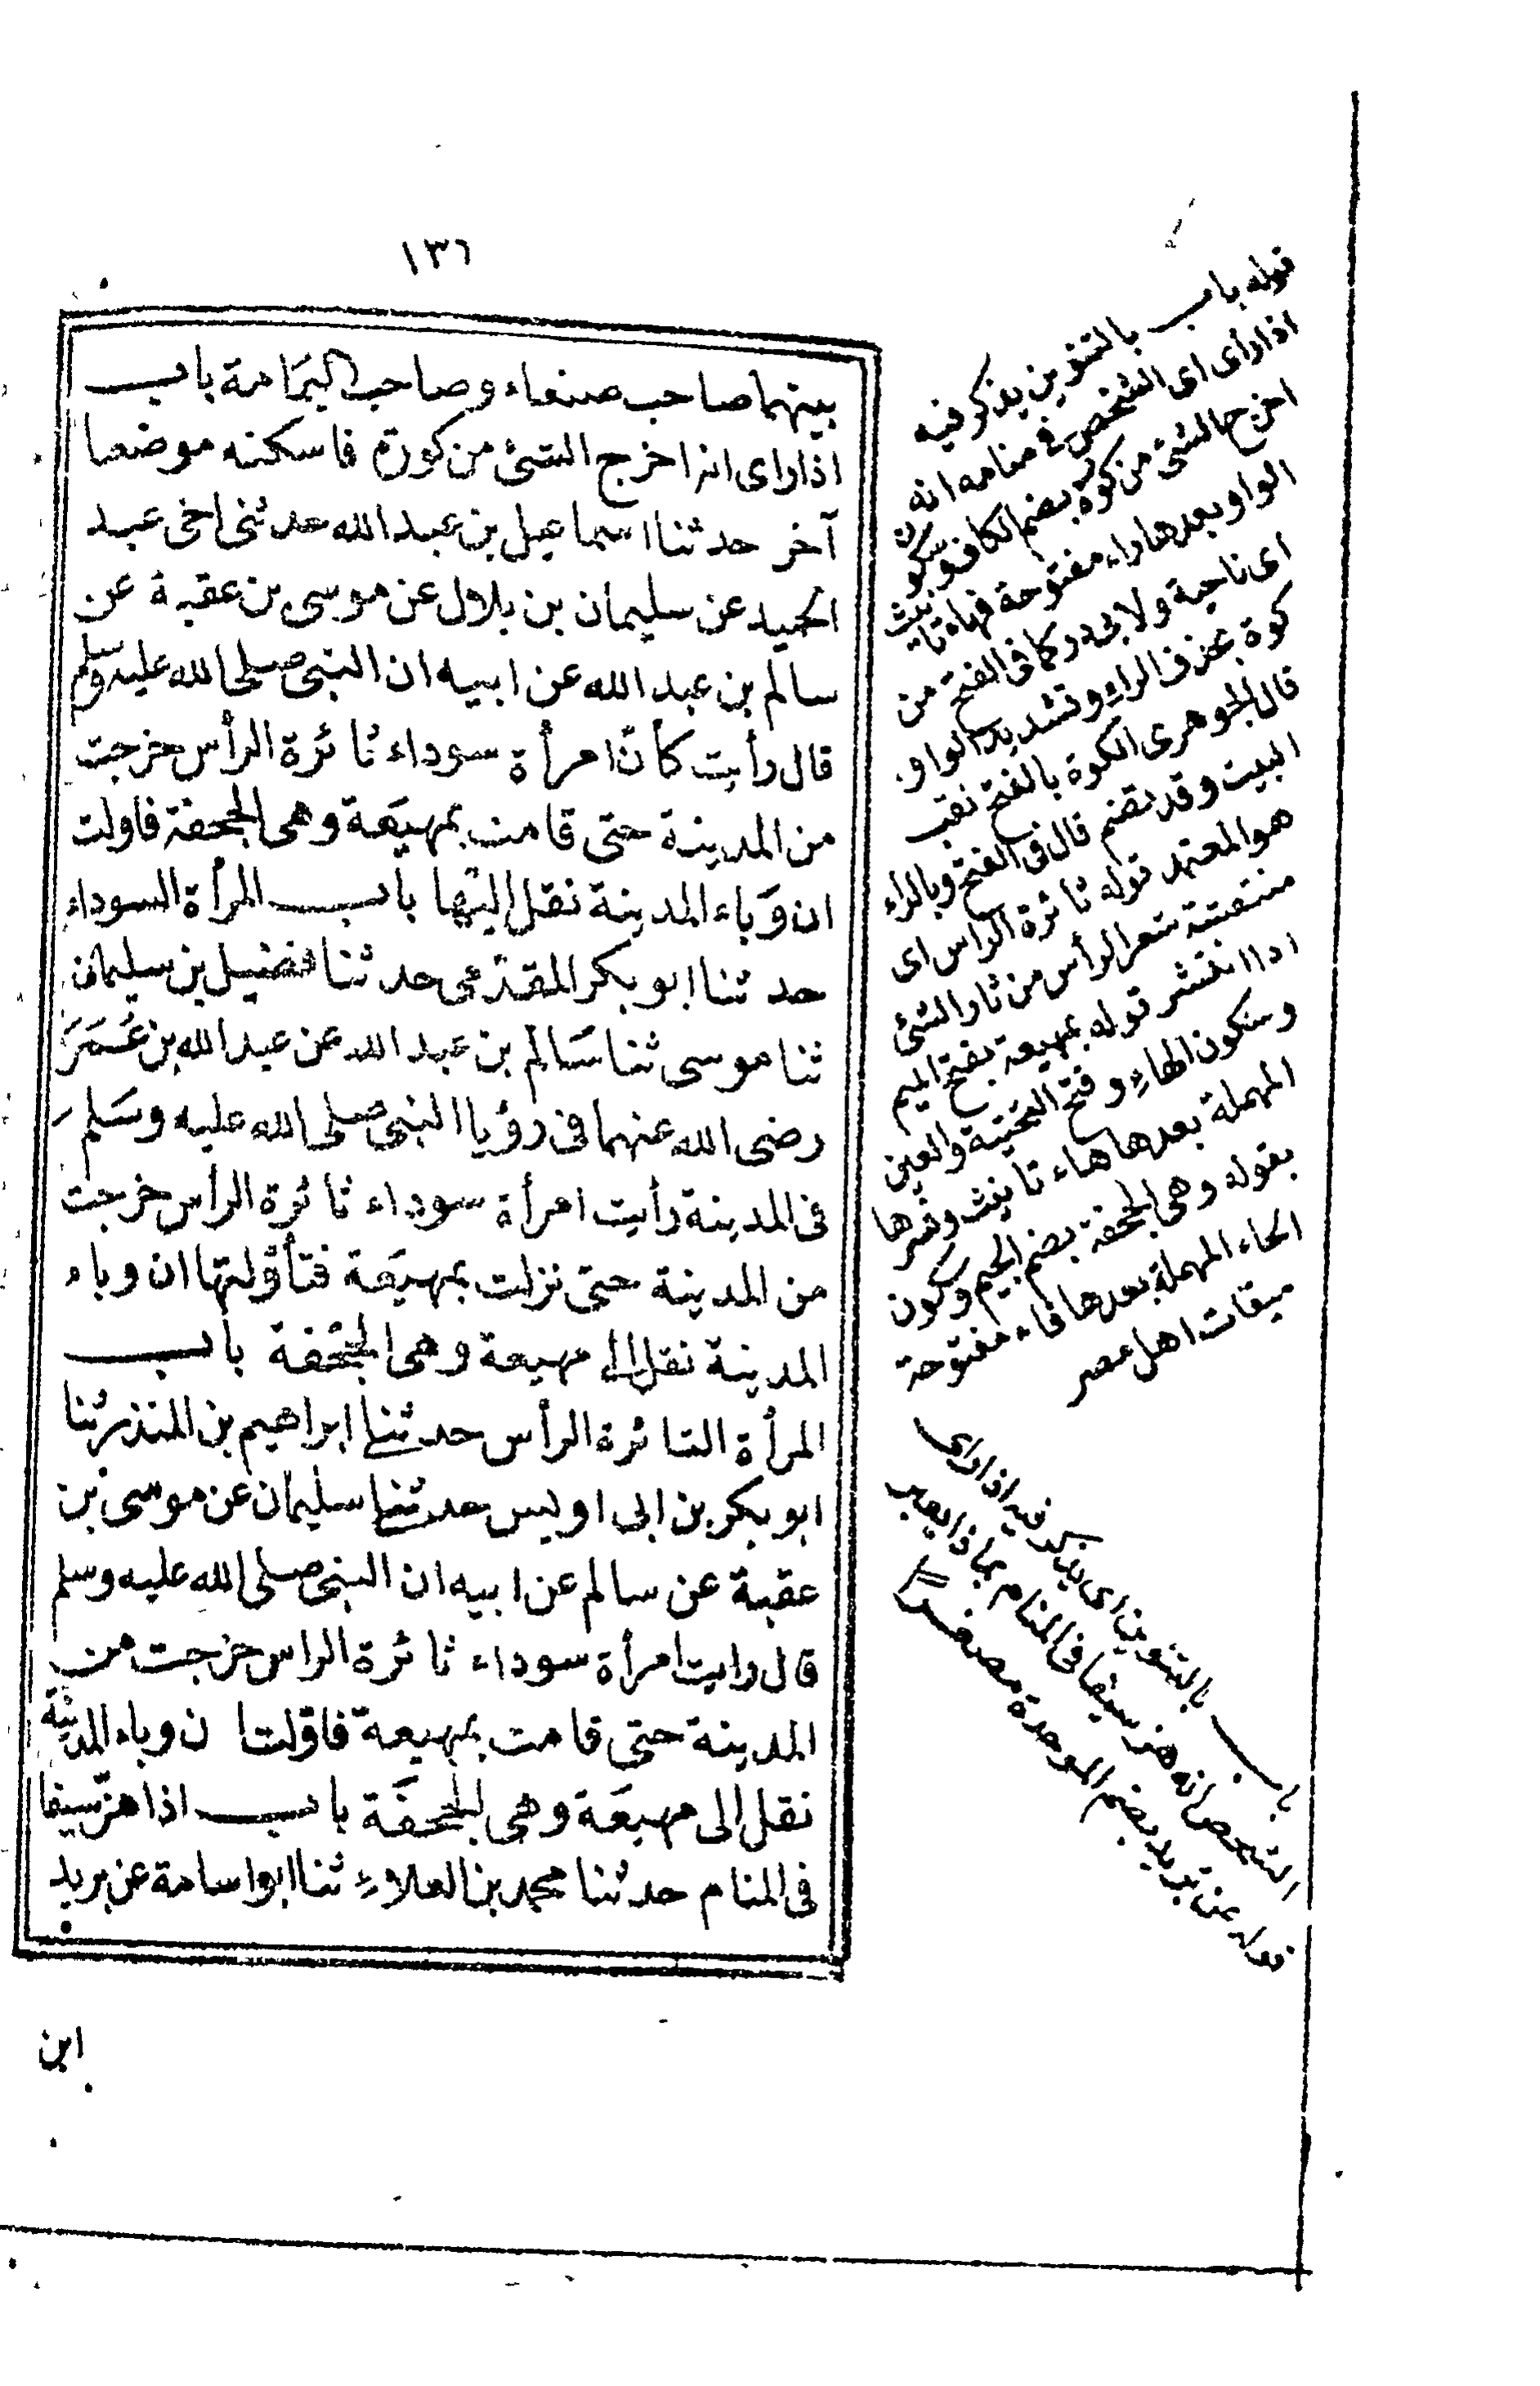 ١٣٦
بينهما صاحب صنعاء وصاحب اليمَامة باب
اذا راى انه اخرج الشئ من كورة فاسكنه موضعا
آخر حدثنا اسماعيل بن عبد الله حدثنى اخى عبد
الحميد عن سليمان بن بلال عن موسى بن عقبة عن
سالم بن عبد الله عن ابيه ان النبى صلى الله عليه وسلم
قال رأيت كأنّ امرأة سوداء ثائرة الرأس خرجت
من المدينة حتى قامت بمهيَعَة وهى الجحفة فاولت
ان وَباء المدينة نقل اليها باب المرأة السوداء
حدثنا ابو بكر المقدّمى حدثنا فضيل بن سليمان
ثنا موسى ثنا سَالم بن عبد الله عن عبد الله بن عُمَرَ
رضى الله عنهما فى رؤيا النبى صَلى الله عليه وسَلم
فى المدينة رأيت امرأة سوداء ثائرة الرأس خرجت
من المدينة حتى نزلت بمهيَعَة فتأوّلتها ان وباء
المدينة نقل الى مهيعة وهى الجُحْفة باب
المرأة الثائرة الرأس حدثنا ابراهيم بن المنذر ثنا
ابو بكر بن ابى اويس حدثنا سليمان عن موسى بن
عقبة عن سالم عن ابيه ان النبى صلى الله عليه وسلم
قال رايت امرأة سوداء ثائرة الراس خرجت من
المدينة حتى قامت بمهيعة فاوّلت ان وباء المدينة
نقل الى مهيعَة وهى الجحفَة باب اذا هزّ سيفا
فى المنام حدثنا محمد بن العلاء ثنا ابو اسامة عن بريد
ابن
قوله باب بالتنوين يذكر فيه
اذا راى اى الشخص فى منامه انه
اخرج الشئ من كورة بضم الكاف وسكون
الواو بعدها راء مفتوحة فهاء تانيث
اى ناحية ولابى ذر كما فى الفتح من
كوة بحذف الراء وتشديد الواو
قال الجوهرى الكوة بالفتح نقب
البيت وقد تضم قال فى الفتح وبالراء
هو المعتمد قوله ثائرة الراس اى
منتفشة شعر الرأس من ثار الشئ
اذا انتشر قوله بمهيعة بفتح الميم
وسكون الهاء وفتح التحتية والعين
المهملة بعدها هاء تانيث وفسرها
بقوله وهى الجحفة بضم الجيم وسكون
الحاء المهملة بعدها فاء مفتوحة
ميقات اهل مصر
باب بالتنوين اى يذكر فيه اذا راى
الشخص انه هز سيفا فى المنام بماذا يعبر
قوله عن بريد بضم الموحدة مصغرا